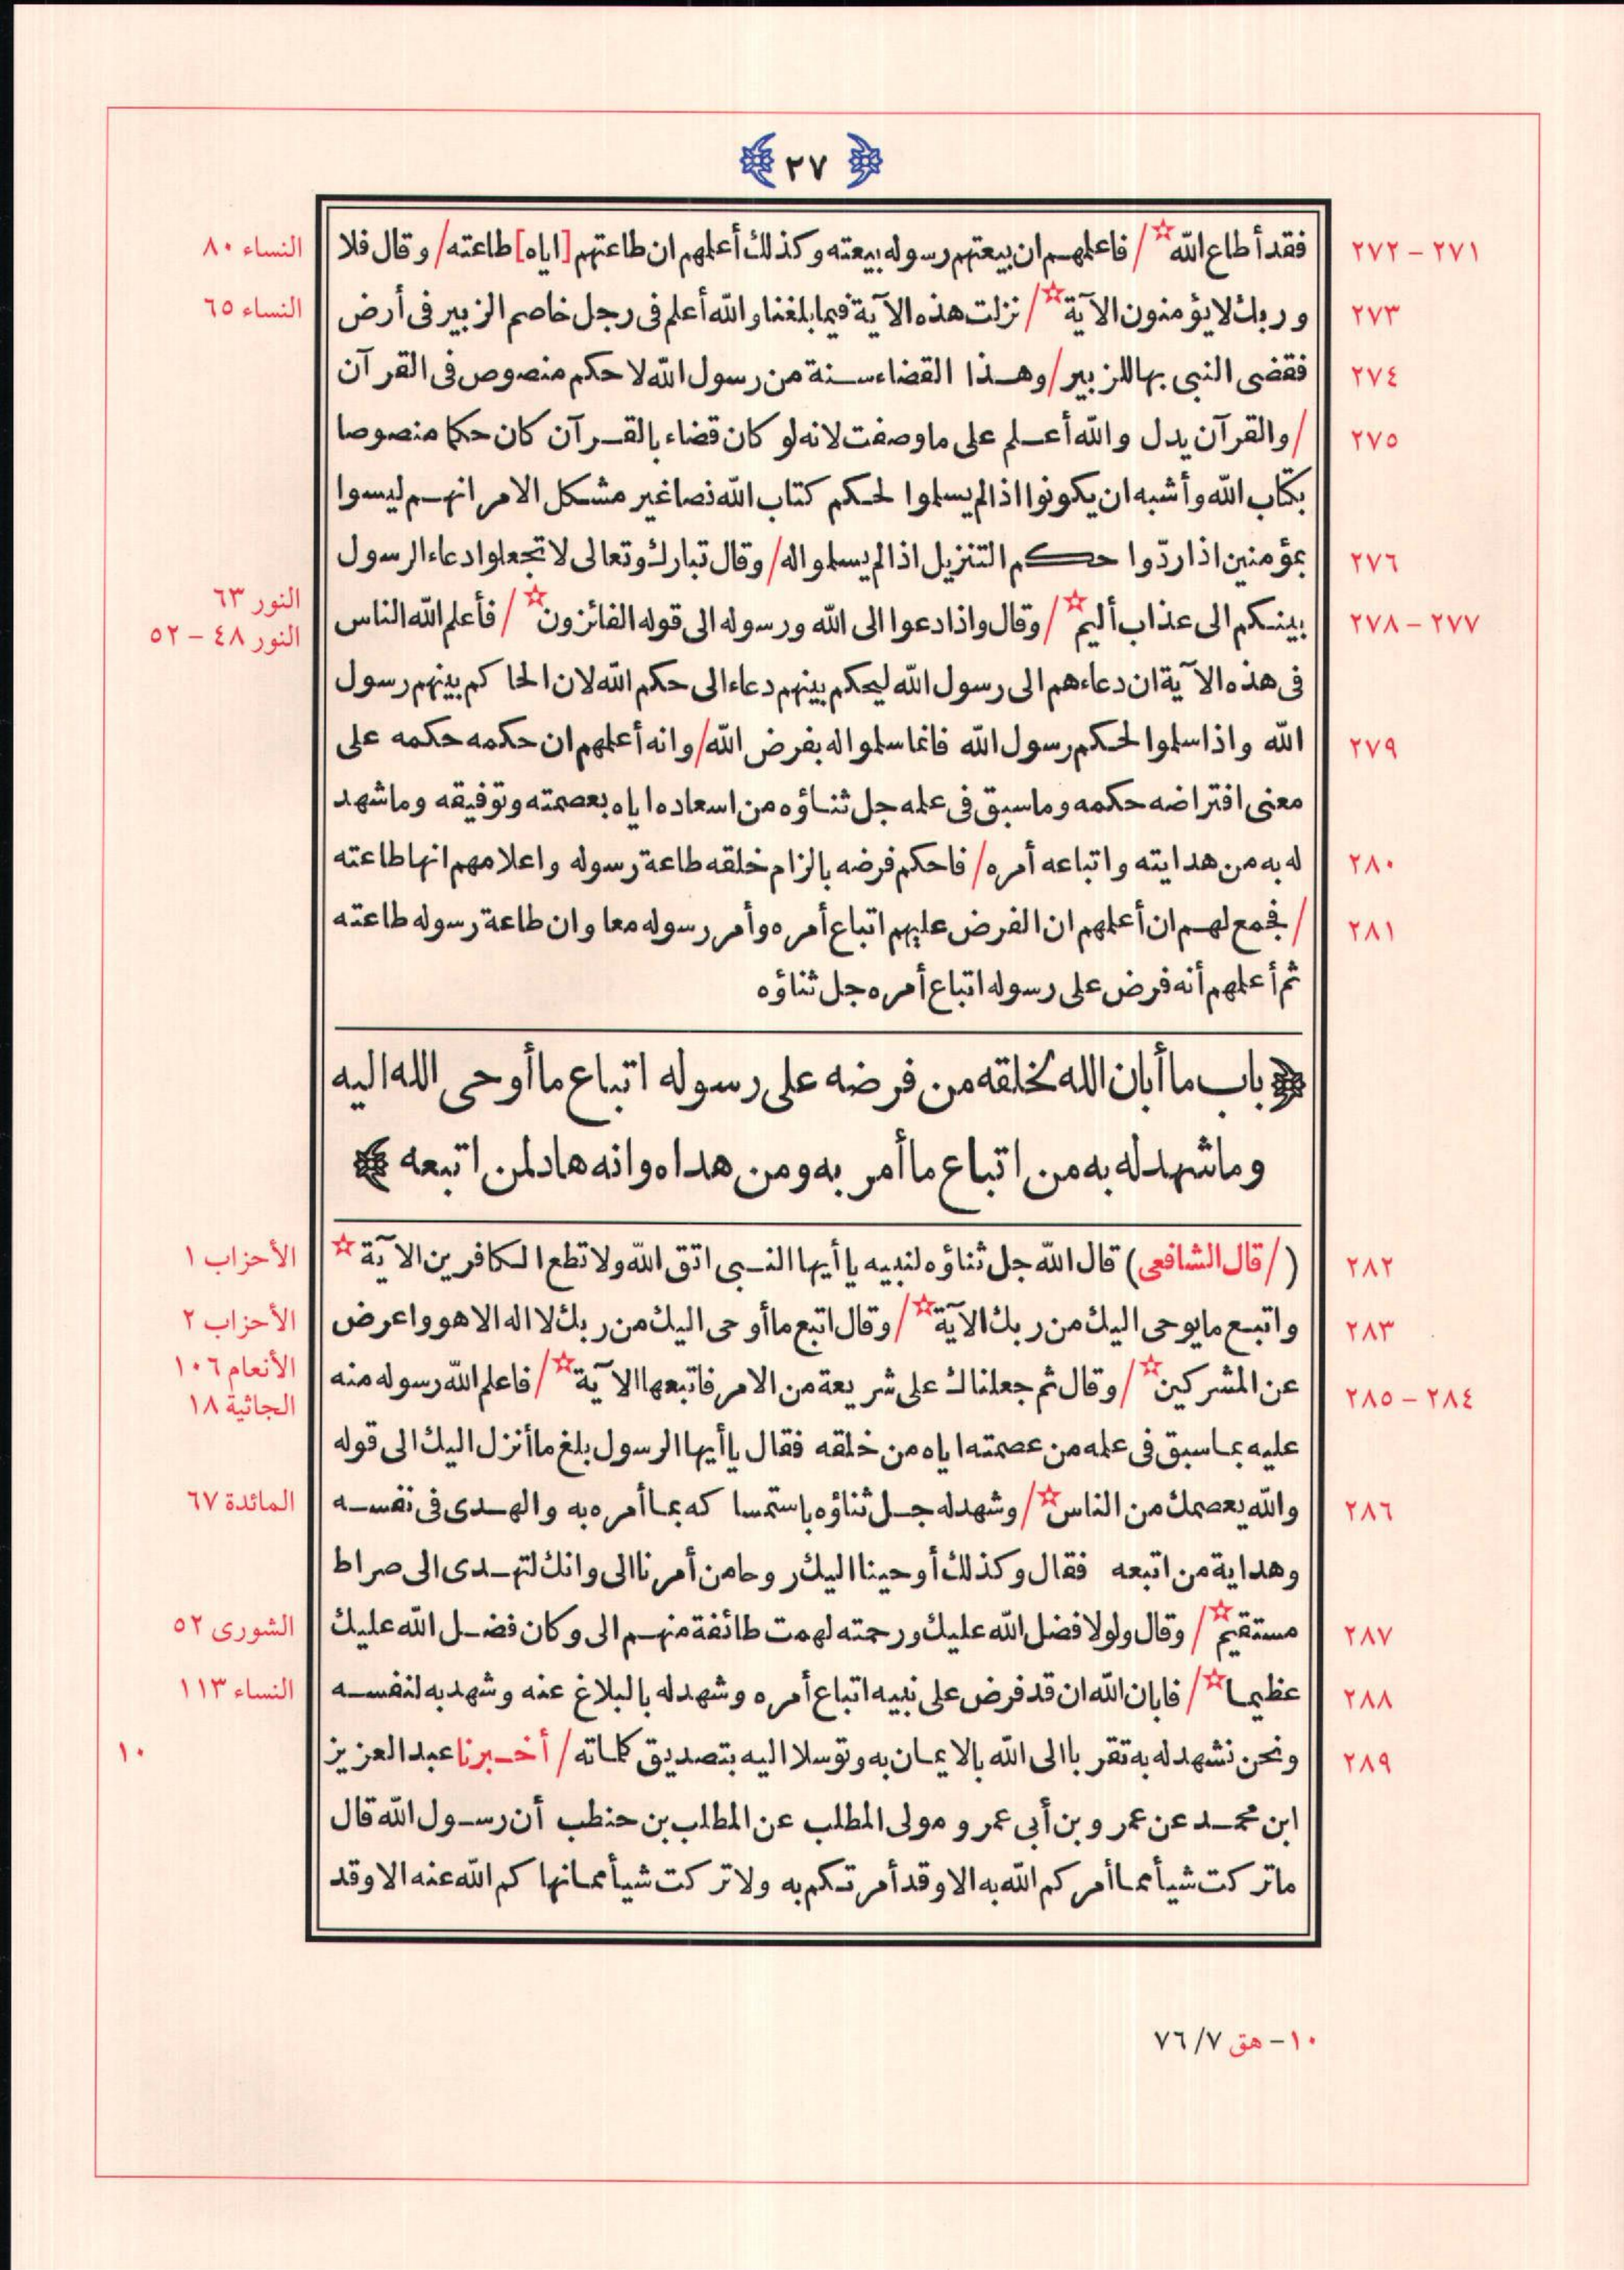 ٢٧
٢٧١ – ٢٧٢ فقد أطاع الله ☆ / فاعلمهم ان بيعتهم رسوله بيعته وكذلك أعلمهم ان طاعتهم [اياه] طاعته / وقال فلا النساء ٨٠
٢٧٣ وربك لا يؤمنون الآية ☆ / نزلت هذه الآية فيما بلغنا والله أعلم فى رجل خاصم الزبير فى أرض النساء ٦٥
٢٧٤ فقضى النبى بها للزبير / وهذا القضاء سنة من رسول الله لا حكم منصوص فى القرآن
٢٧٥ / والقرآن يدل والله أعلم على ما وصفت لانه لو كان قضاء بالقرآن كان حكما منصوصا
بكتاب الله وأشبه ان يكونوا اذا لم يسلموا لحكم كتاب الله نصا غير مشكل الامر انهم ليسوا
٢٧٦ بمؤمنين اذا ردّوا حكم التنزيل اذا لم يسلموا له / وقال تبارك وتعالى لا تجعلوا دعاء الرسول
النور ٦٣
٢٧٧ – ٢٧٨ بينكم الى عذاب أليم ☆ / وقال واذا دعوا الى الله ورسوله الى قوله الفائزون ☆ / فأعلم الله الناس النور ٤٨ – ٥٢
فى هذه الآية ان دعاءهم الى رسول الله ليحكم بينهم دعاء الى حكم الله لان الحاكم بينهم رسول
٢٧٩ الله واذا سلموا لحكم رسول الله فانما سلموا له بفرض الله / وانه أعلمهم ان حكمه حكمه على
معنى افتراضه حكمه وما سبق فى علمه جل ثناؤه من اسعاده اياه بعصمته وتوفيقه وما شهد
٢٨٠ له به من هدايته واتباعه أمره / فاحكم فرضه بالزام خلقه طاعة رسوله واعلامهم انها طاعته
٢٨١ / فجمع لهم ان أعلمهم ان الفرض عليهم اتباع أمره وأمر رسوله معا وان طاعة رسوله طاعته
ثم أعلمهم أنه فرض على رسوله اتباع أمره جل ثناؤه
باب ما أبان الله لخلقه من فرضه على رسوله اتباع ما أوحى الله اليه
وما شهد له به من اتباع ما أمر به ومن هداه وانه هاد لمن اتبعه
٢٨٢ ( / قال الشافعى) قال الله جل ثناؤه لنبيه يا أيها النبى اتق الله ولا تطع الكافرين الآية ☆ الأحزاب ١
٢٨٣ واتبع ما يوحى اليك من ربك الآية ☆ / وقال اتبع ما أوحى اليك من ربك لا اله الا هو واعرض الأحزاب ٢
الأنعام ١٠٦
٢٨٤ – ٢٨٥ عن المشركين ☆ / وقال ثم جعلناك على شريعة من الامر فاتبعها الآية ☆ / فاعلم الله رسوله منه الجاثية ١٨
عليه بما سبق فى علمه من عصمته اياه من خلقه فقال يا أيها الرسول بلغ ما أنزل اليك الى قوله
٢٨٦ والله يعصمك من الناس ☆ / وشهد له جل ثناؤه باستمساكه بما أمره به والهدى فى نفسه المائدة ٦٧
وهداية من اتبعه فقال وكذلك أوحينا اليك روحا من أمرنا الى وانك لتهدى الى صراط
٢٨٧ مستقيم ☆ / وقال ولولا فضل الله عليك ورحمته لهمت طائفة منهم الى وكان فضل الله عليك الشورى ٥٢
٢٨٨ عظيما ☆ / فابان الله ان قد فرض على نبيه اتباع أمره وشهد له بالبلاغ عنه وشهد به لنفسه النساء ١١٣
٢٨٩ ونحن نشهد له به تقربا الى الله بالايمان به وتوسلا اليه بتصديق كلماته / أخبرنا عبد العزيز ١٠
ابن محمد عن عمرو بن أبى عمرو مولى المطلب عن المطلب بن حنطب أن رسول الله قال
ما تركت شيأ مما أمركم الله به الا وقد أمرتكم به ولا تركت شيأ مما نهاكم الله عنه الا وقد
١٠ – هق ٧/٧٦